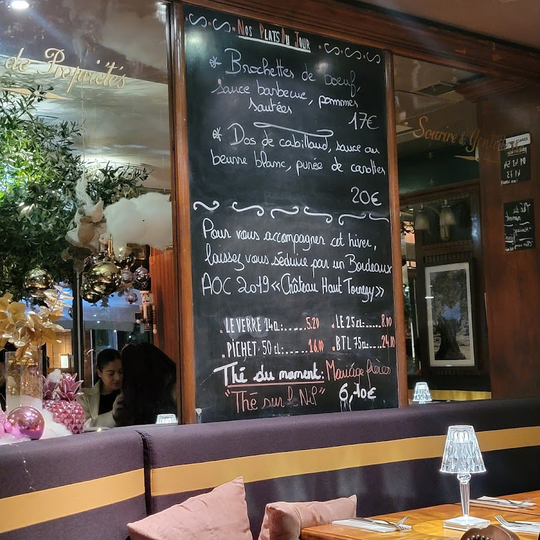 Nos Plats Du Jour
* Brochettes de boeuf,
sauce barbecue, pommes
sautées
17€
* Dos de cabillaud, sauce au
beurre blanc, purée de carottes
20€
Pour vous accompagner cet hiver,
laissez vous séduire par un Bordeaux
AOC 2019 «Château Haut Tourney»
. LE VERRE 14cl:......5.20
. LE 25cl:......8.80
. PICHET. 50cl:......16.10
. BTL 75cl:....24.00
Thé du moment: Mariage frères
"Thé sur le Nil" 6,40€
de Propriétés